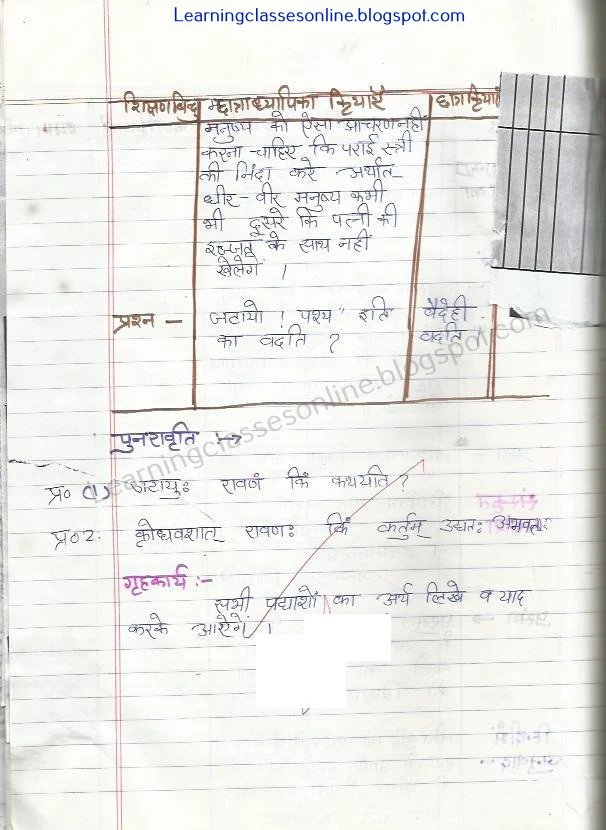 Learningclassesonline.blogspot.com
शिक्षणबिन्दु छात्राध्यापिका क्रियाएँ छात्रा क्रियाएँ
मनुष्य को ऐसा आचरण नहीं
करना चाहिए कि पराई स्त्री
की निंदा करे अर्थात
धीर - वीर मनुष्य कभी
भी दूसरे कि पत्नी की
इज्जत के साथ नहीं
खेलेगें ।
प्रश्न - जटायो ! पश्य" इति वैदेही
का वदति ? वदति
Learningclassesonline.blogspot.com
पुनरावृति :->
प्र० (1) जटायुः रावणं किं कथयति ?
प्र० 2. क्रोधवशात् रावणः किं कर्तुम् उद्यतः अभवत्
गृहकार्य :-
सभी पद्याशों का अर्थ लिखे व याद
करके आऐगें ।